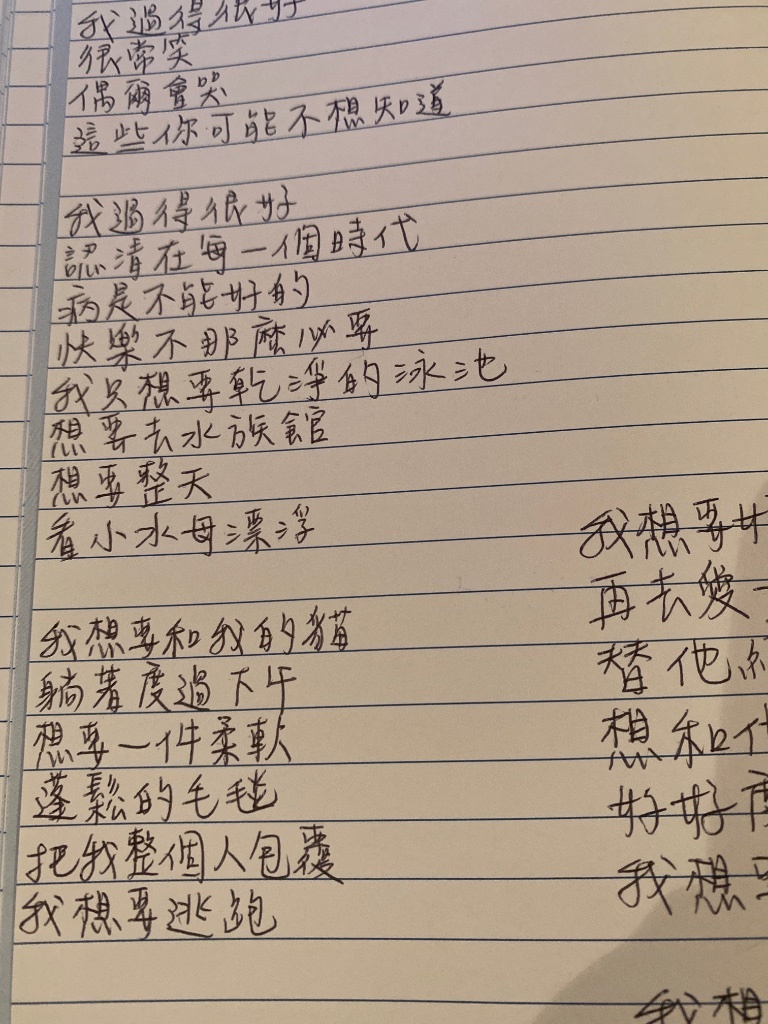 我過得很好
很常笑
偶爾會哭
這些你可能不想知道
我過得很好
認清在每一個時代
病是不能好的
快樂不那麼必要
我只想要乾淨的泳池
想要去水族館
想要整天
看小水母漂浮
我想要和我的貓
躺著度過下午
想要一件柔軟
蓬鬆的毛毯
把我整個人包覆
我想要逃跑
我想要
再去愛
替他
想和
好好度
我想要
我想